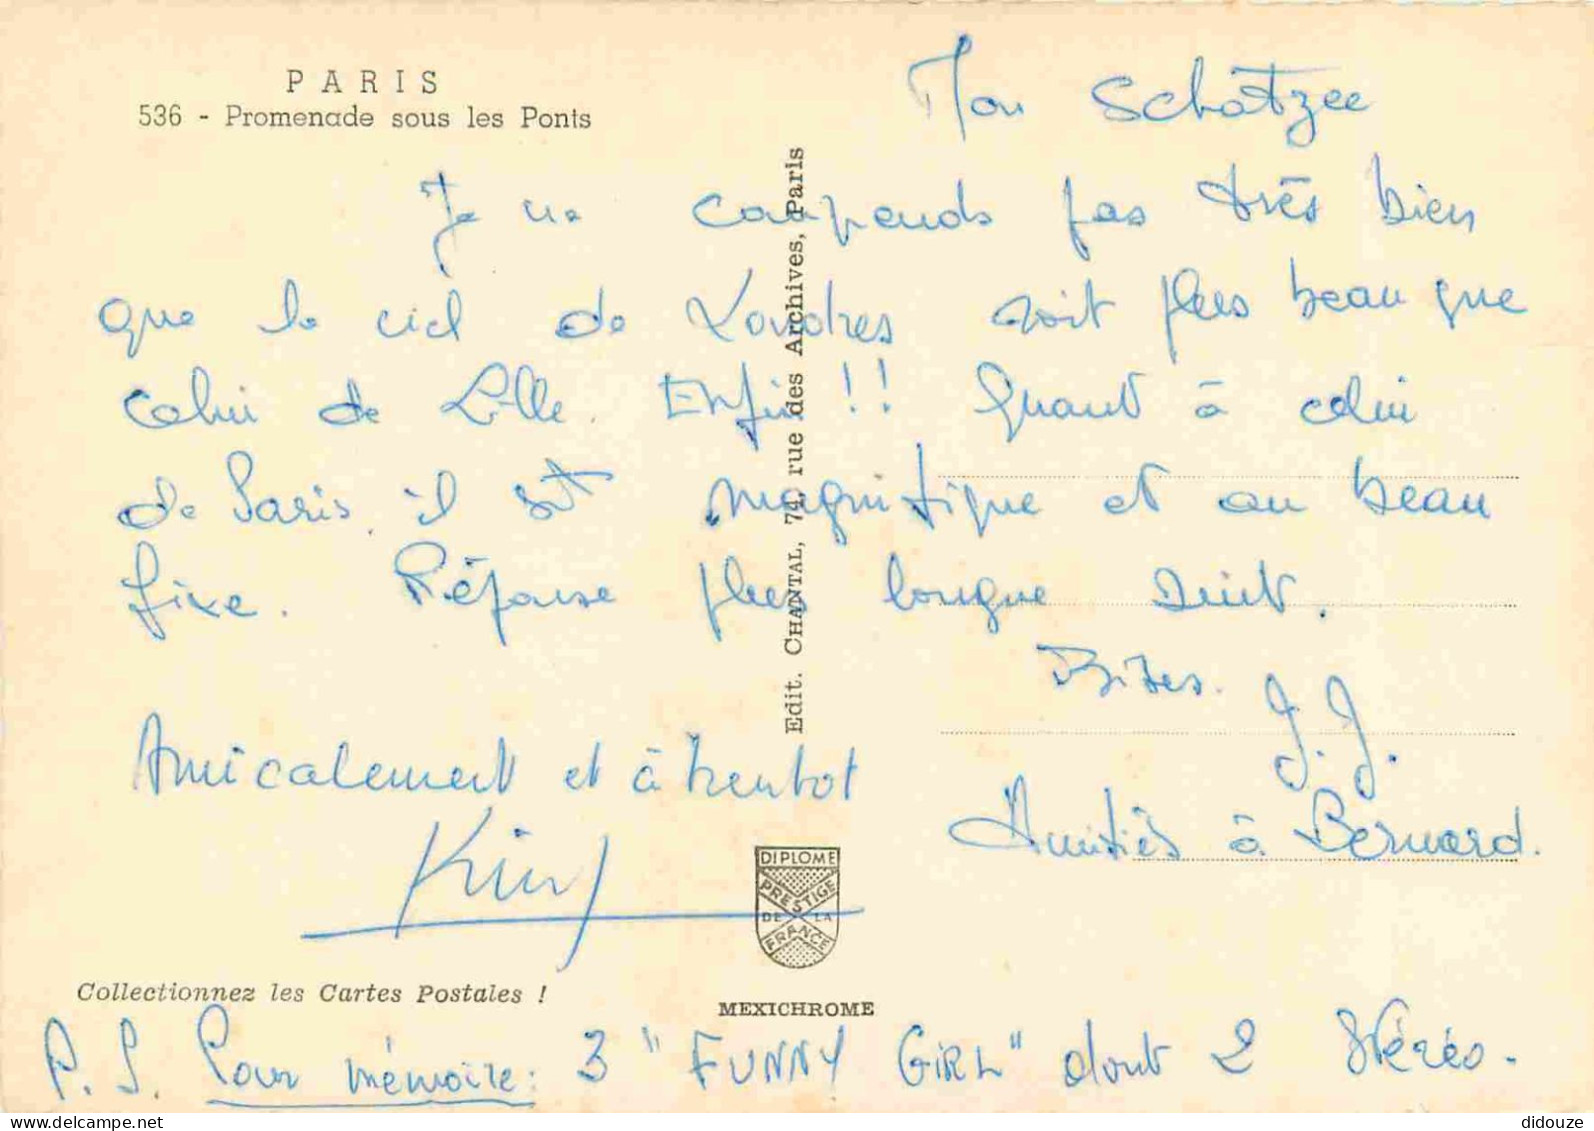 PARIS
536 - Promenade sous les Ponts
Mon Schatzee
Je ne comprends pas très bien
que le ciel de Londres soit plus beau que
celui de Lille. Enfin!! Quant à celui
de Paris, il est magnifique et au beau
fixe. Réponse plus longue suit.
Bises. J.J.
Amicalement et à bientot
Amitiés à Bernard.
Edit. CHANTAL, 74, rue des Archives, Paris
DIPLOME
PRESTIGE
DE LA
FRANCE
Collectionnez les Cartes Postales !
MEXICHROME
P.S. Pour mémoire: 3 "FUNNY GIRL" dont 2 stéréos.
didouze